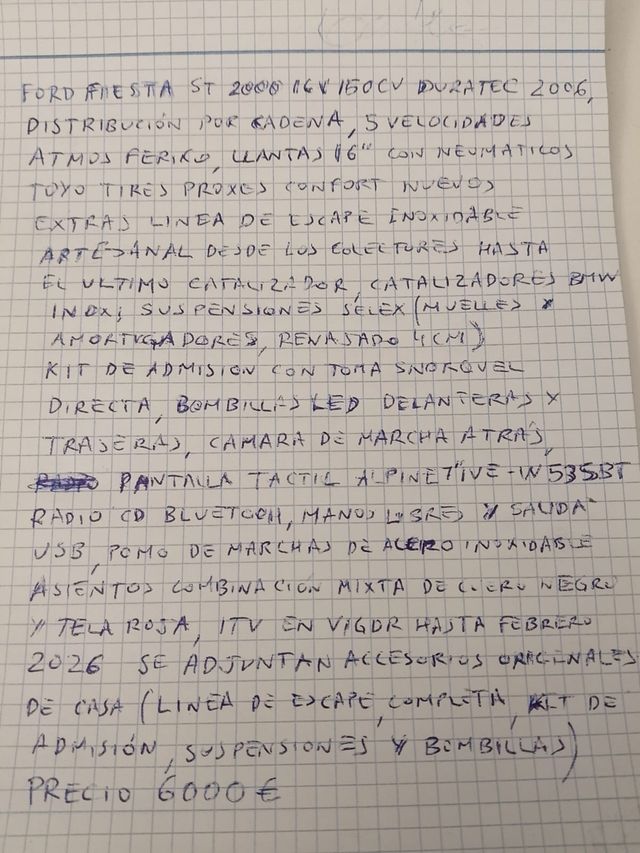 FORD FIESTA ST 2000 16V 150CV DURATEC 2006,
DISTRIBUCIÓN POR CADENA, 5 VELOCIDADES
ATMOSFERICO, LLANTAS 16" CON NEUMATICOS
TOYO TIRES PROXES CONFORT NUEVOS
EXTRAS LINEA DE ESCAPE INOXIDABLE
ARTESANAL DESDE LOS COLECTORES HASTA
EL ULTIMO CATALIZADOR, CATALIZADORES BMW
INOX; SUSPENSIONES SELEX (MUELLES Y
AMORTIGADORES, REVAJADO 4CM)
KIT DE ADMISION CON TOMA SNORQUEL
DIRECTA, BOMBILLAS LED DELANTERAS Y
TRASERAS, CAMARA DE MARCHA ATRÁS,
PANTALLA TACTIL ALPINE 7" IVE-W 535BT
RADIO CD BLUETOOH, MANOS LIBRES Y SALIDA
USB, POMO DE MARCHAS DE ACERO INOXIDABLE
ASIENTOS COMBINACION MIXTA DE CUERO NEGRO
Y TELA ROJA, ITV EN VIGOR HASTA FEBRERO
2026 SE ADJUNTAN ACCESORIOS ORIGENALES
DE CASA (LINEA DE ESCAPE, COMPLETA, KIT DE
ADMISIÓN, SUSPENSIONES Y BOMBILLAS)
PRECIO 6000€